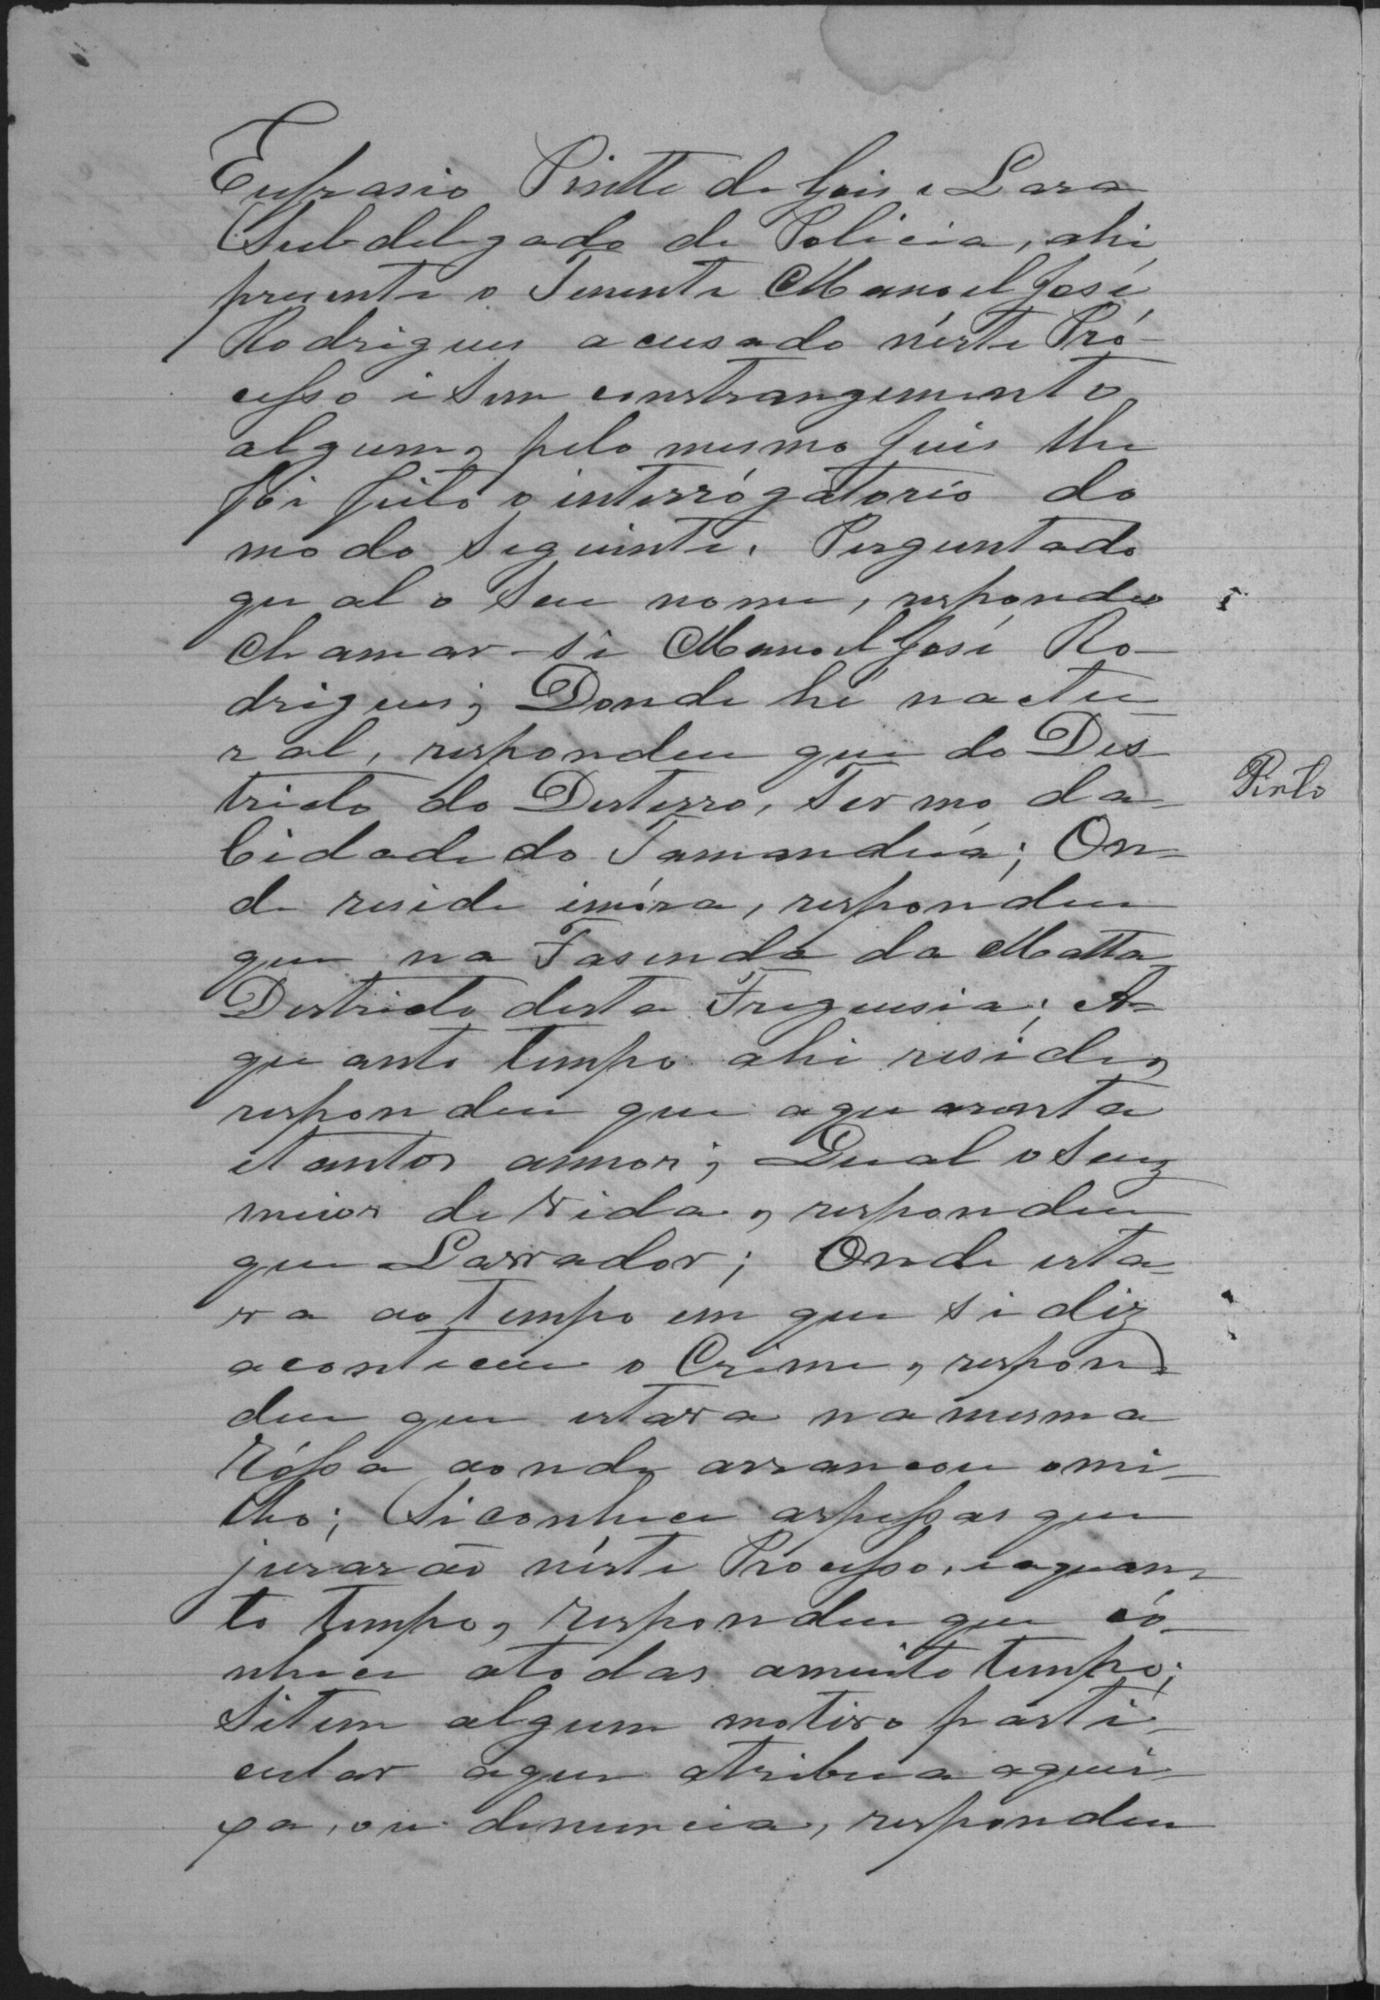 Eufrasio Pintto de Gois e Lara
Subdelegado de Policia, ahi
presente o Tenente Manoel José
Rodrigues acusado néste Pró-
cesso i sem constrangimento
algum, pelo mesmo Juis lhe
foi feito o interrógatorio do
modo seguinte. Perguntado
qual o seu nome, respondeo
chamar-si Manoel José Ro-
drigues; Donde hé nactu-
ral, respondeu que do Des
tricto do Desterro, Termo da
Cidade do Tamanduá; On-
de reside imóra, respondeu
que na Fasenda da Matta
Destricto desta Freguesia; A-
quanto tempo ahi reside,
respondeu que aquarenta
etantos annos; Qual o seuz
meios de vida, respondeu
que Lavrador; Onde esta-
va ao tempo em que si diz
aconteceu o Crime, respon-
deu que estava na mesma
Róssa aonde arrancou omi-
lho; Si conhece aspessas que
jurarão néste Processo, eaquan-
to tempo, respondeu que có-
nhece atodas amuito tempo;
Sitem algum motivo parti-
cular aque atribua aquei-
xa, ou denuncia, respondeu
Pinto